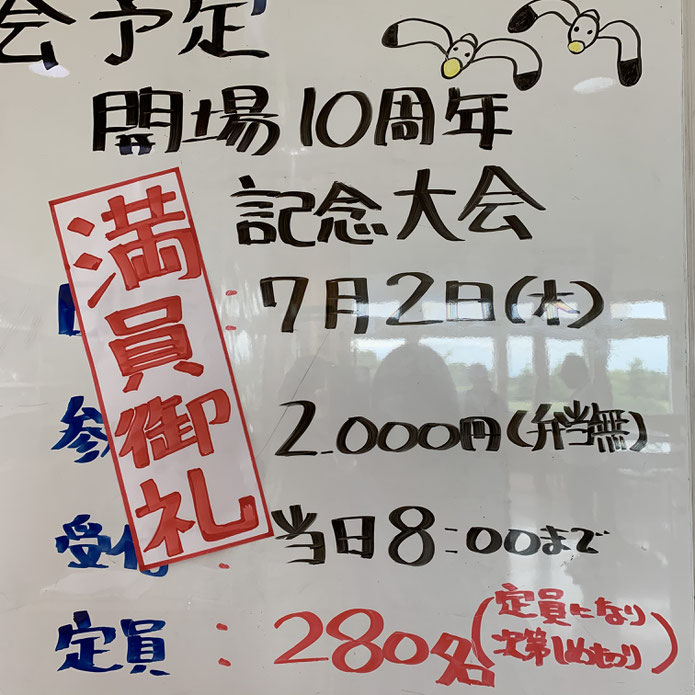 会予定
開場10周年
記念大会
満員御礼
：7月2日(木)
参 2.000円(弁当無)
受付：当日8:00まで
定員：280名(定員になり
次第しめきり)